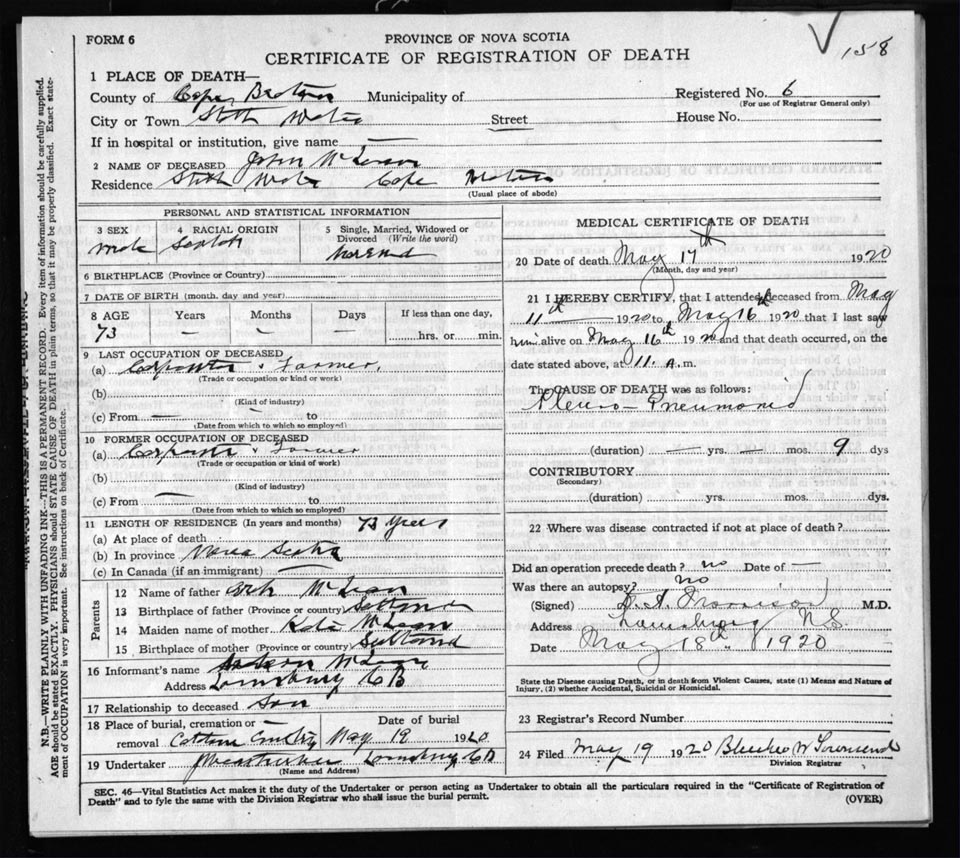 158
FORM 6
PROVINCE OF NOVA SCOTIA
CERTIFICATE OF REGISTRATION OF DEATH
1 PLACE OF DEATH—
County of Cape Breton Municipality of Registered No. 6
(For use of Registrar General only)
City or Town Street House No.
If in hospital or institution, give name —
2 NAME OF DECEASED John McLean
Residence Cape Breton
(Usual place of abode)
PERSONAL AND STATISTICAL INFORMATION
3 SEX 4 RACIAL ORIGIN 5 Single, Married, Widowed or Divorced (Write the word)
Male Scotch Married
6 BIRTHPLACE (Province or Country)
7 DATE OF BIRTH (month, day and year)
8 AGE Years Months Days If less than one day,
73 — — — hrs. or min.
9 LAST OCCUPATION OF DECEASED
(a) Carpenter & Farmer
(Trade or occupation or kind or work)
(b)
(Kind of industry)
(c) From — to
(Date from which to so employed)
10 FORMER OCCUPATION OF DECEASED
(a) Carpenter & Farmer
(Trade or occupation or kind of work)
(b)
(Kind of industry)
(c) From — to
(Date from which to so employed)
11 LENGTH OF RESIDENCE (In years and months) 73 years
(a) At place of death
(b) In province Nova Scotia
(c) In Canada (if an immigrant) —
Parents
12 Name of father Arch McLean
13 Birthplace of father (Province or country) Scotland
14 Maiden name of mother Kate McLean
15 Birthplace of mother (Province or country) Scotland
16 Informant's name McLean
Address Louisburg C B
17 Relationship to deceased Son
18 Place of burial, cremation or — Date of burial
removal May 19 1920
19 Undertaker Louisburg C B
(Name and Address)
MEDICAL CERTIFICATE OF DEATH
20 Date of death May 17th 1920
(Month, day and year)
21 I HEREBY CERTIFY, that I attended deceased from May
11th 1920 to May 16th 1920 that I last saw
him alive on May 16th 1920 and that death occurred, on the
date stated above, at 11. A.m.
The CAUSE OF DEATH was as follows:
Pleuro-Pneumonia
(duration) — yrs. — mos. 9 dys
CONTRIBUTORY
(Secondary)
(duration) yrs. mos. dys.
22 Where was disease contracted if not at place of death?
Did an operation precede death? no Date of —
Was there an autopsy? no
(Signed) M.D.
Address Louisburg N.S.
Date May 18th 1920
State the Disease causing Death, or in death from Violent Causes, state (1) Means and Nature of
Injury, (2) whether Accidental, Suicidal or Homicidal.
23 Registrar's Record Number
24 Filed May 19 1920 Townsend
Division Registrar
SEC. 46—Vital Statistics Act makes it the duty of the Undertaker or person acting as Undertaker to obtain all the particulars required in the "Certificate of Registration of
Death" and to fyle the same with the Division Registrar who shall issue the burial permit. (OVER)
N.B.—WRITE PLAINLY WITH UNFADING INK—THIS IS A PERMANENT RECORD. Every item of information should be carefully supplied.
AGE should be stated EXACTLY. PHYSICIANS should STATE CAUSE OF DEATH in plain terms, so that it may be properly classified. Exact state-
ment of OCCUPATION is very important. See instructions on back of Certificate.